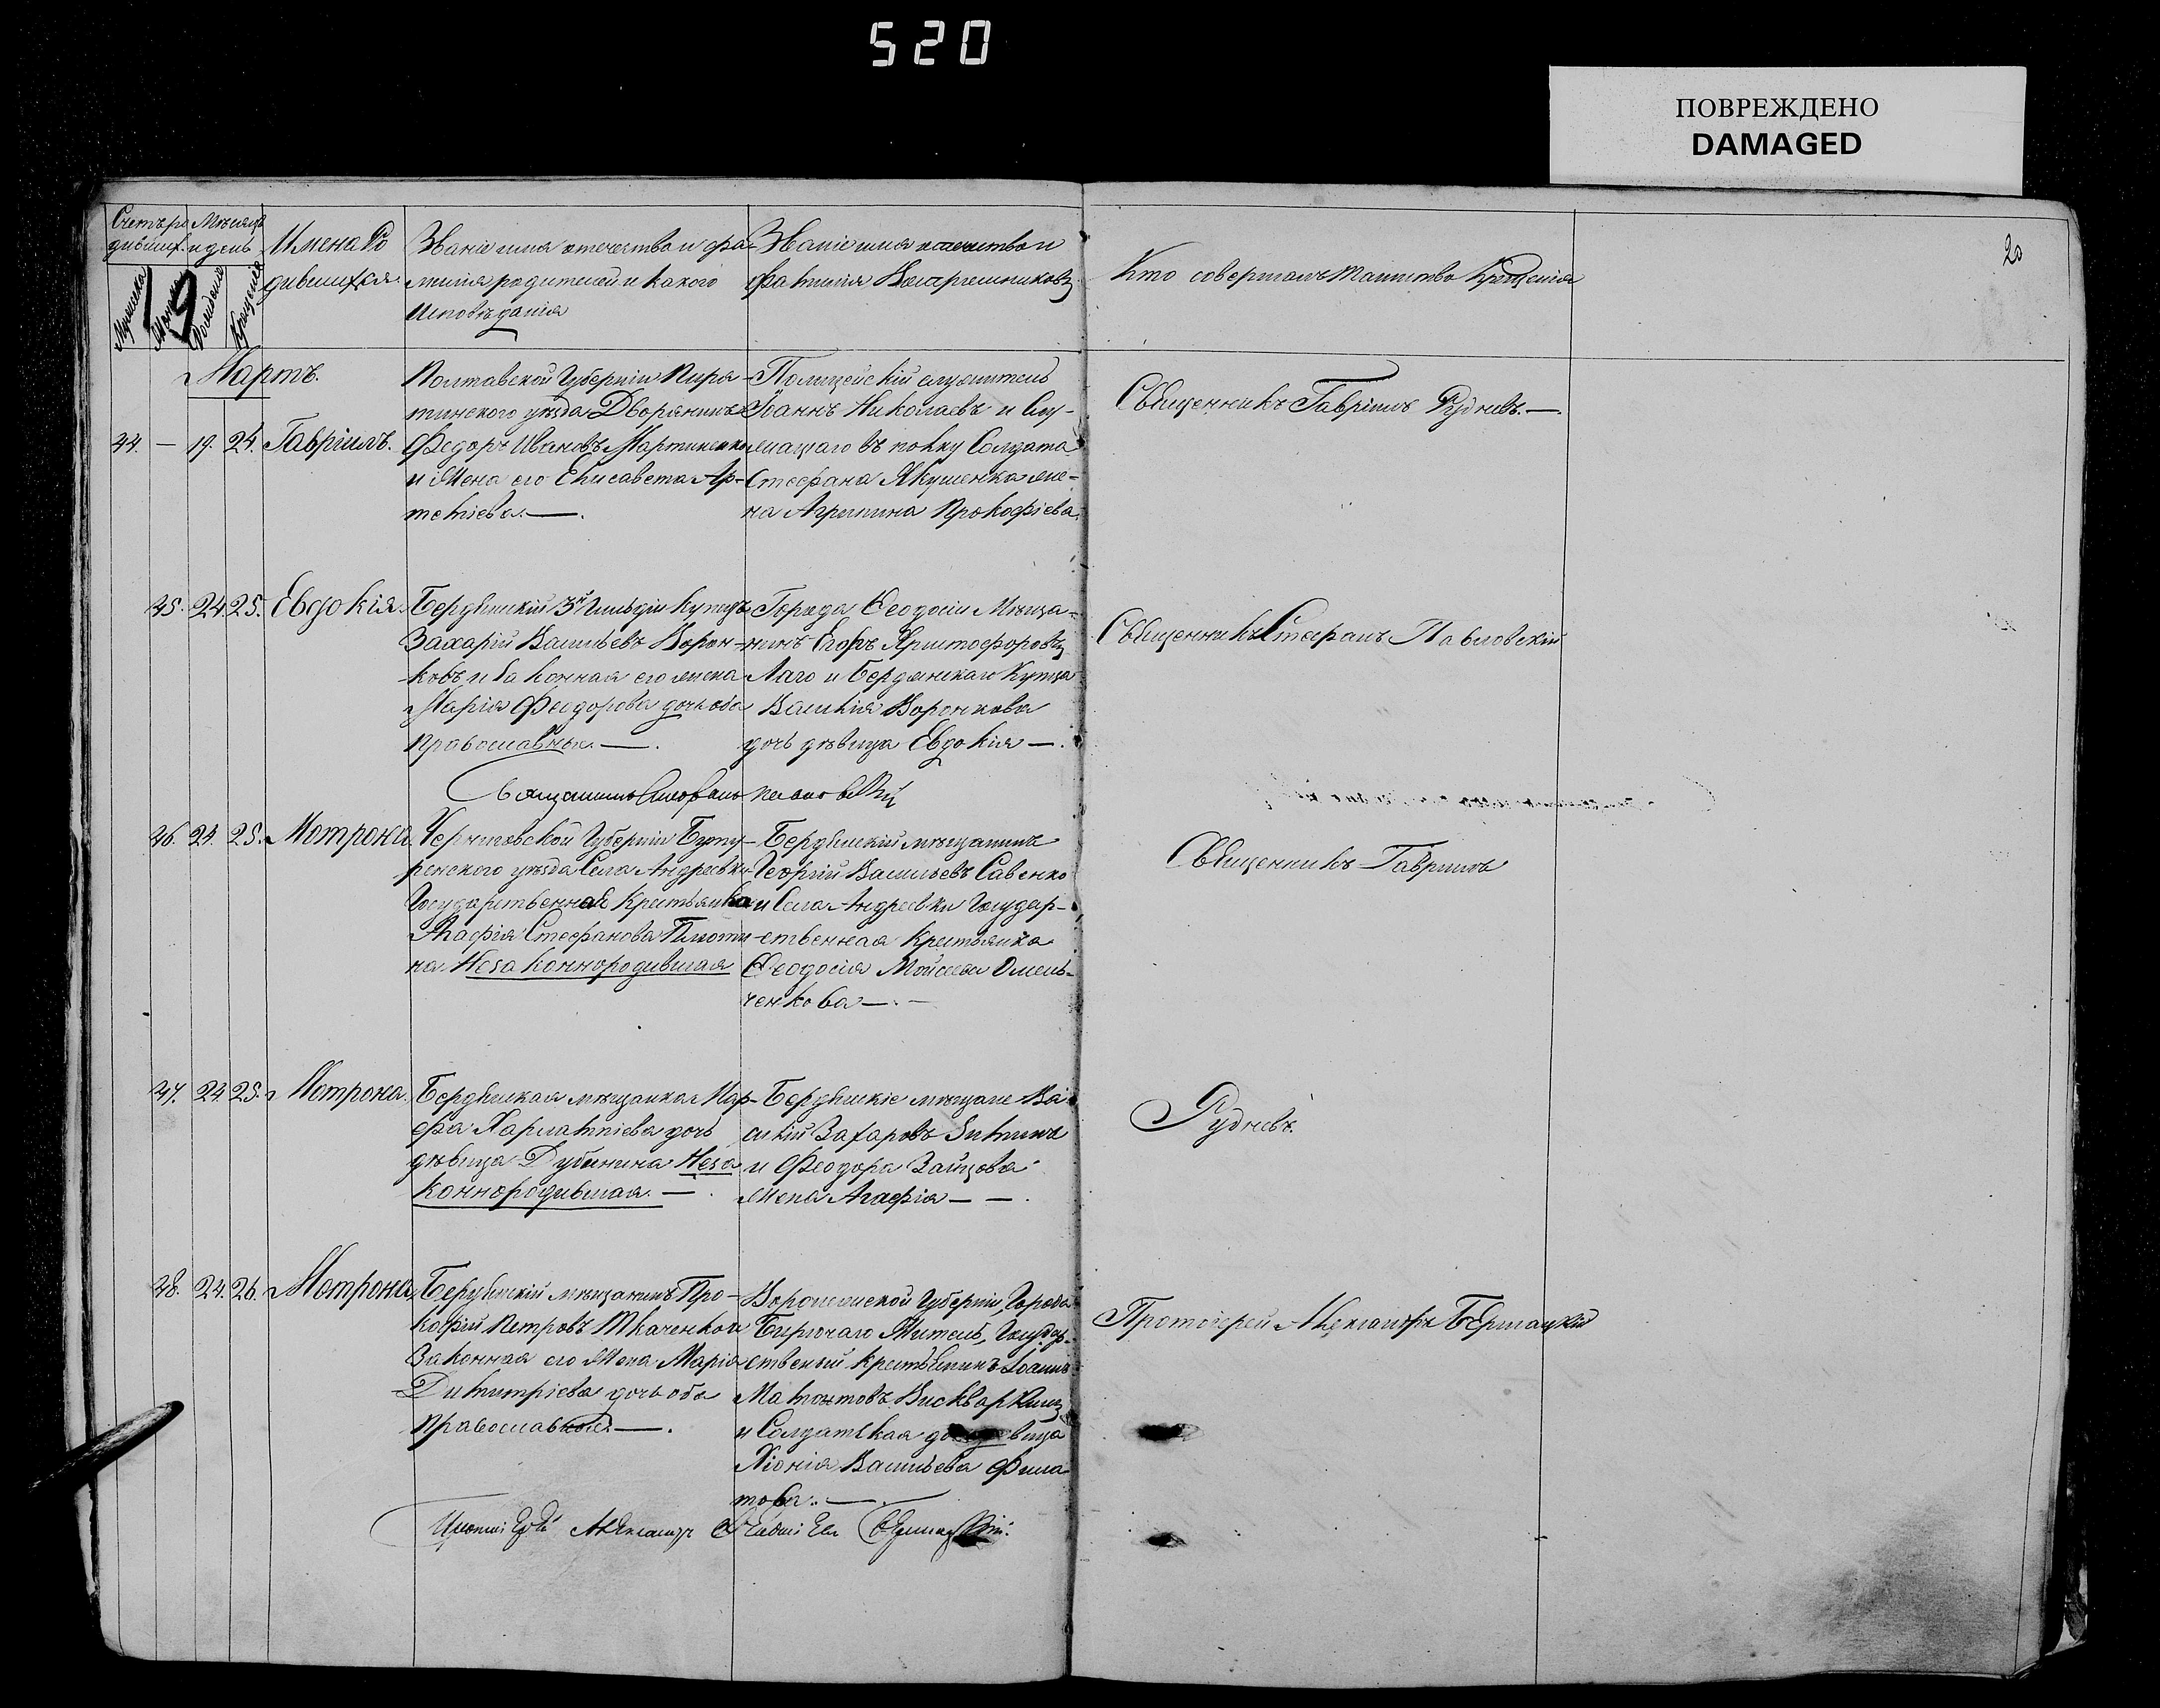 520
ПОВРЕЖДЕНО
DAMAGED
20
Счетъ ро Мѣсяцъ
дивших. и день
Имена Ро
дившихся.
Званіе имя отечество и фа-
милія родителей и какого
исповѣданія
Званіе имя отечество и
фамилія Воспріемниковъ
Кто совершалъ таинство крещенія
19
Мартъ.
44. — 19. 24. Гавріилъ.
Полтавской Губерніи Пиря-
тинского уѣзда Дворянинъ
Федоръ Ивановъ Мартиненко
и Жена его Елисавета Ар-
темiева. —.
Полицейскій служитель
Іоаннъ Николаевъ и Слу-
жащаго въ полку Солдата
Стефана Якушенка же-
на Агрипина Прокофіева.
Священникъ Гавріилъ Рудневъ. —.
45. 24. 25. Евдокія.
Бердянскій 3й Гильдіи Купецъ
Захарій Васильевъ Ворон-
ковъ и законная его жена
Марія Феодорова дочь оба
православные. —.
Города Феодосіи Мѣща-
нинъ Егоръ Христофоровъ
Лаго и Бердянскаго Купца
Василія Воронкова
дочь дѣвица Евдокія —.
Священникъ Стефанъ Павловскій
Священникъ Стефанъ Павловскій
46. 24. 25. Мотрона.
Черниговской Губерніи
ренского уѣзда Села Андреевки
Государственная Крестьянка
Агафія Стефанова Плотни
на Незаконнородившая
Бердянскій мѣщанинъ
Георгій Васильевъ Савенко
и Села Андреевки Государ-
ственная Крестьянка
Феодосія Мойсеева Омель-
ченкова —. —
Священникъ Гавріилъ
47. 24. 25. Мотрона.
Бердянская мѣщанка Мар-
фа Харлампіева дочь
дѣвица Дубинина Неза
коннородившая. —.
Бердянскіе мѣщане Ва
силій Захаровъ Зиминъ
и Феодора Зайцова
Жена Агафія — —.
Рудневъ.
48. 24. 26. Мотрона.
Бердянскій мѣщанинъ Про-
кофій Петровъ Ткаченко и
Законная его Жена Марія
Димитріева дочь оба
православные. —.
Воронежской Губерніи, Города
Бирючаго Житель, Государ-
ственый крестьянинъ Іоаннъ
и Солдатская
Хіонія Васильева Фила
това. —.
Протоіерей Александръ
Протоіерей Александръ